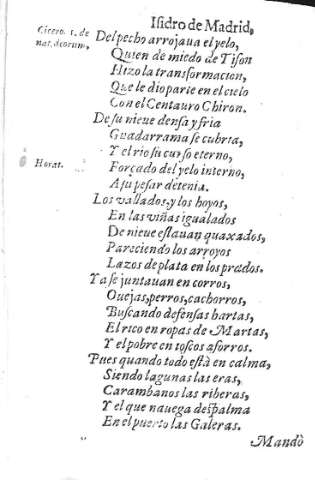 Isidro de Madrid,
Cicero. 1. de
nat. deorum,
Del pecho arrojaua el yelo,
Quien de miedo de Tifon
Hizo la transformacion,
Que le dio parte en el cielo
Con el Centauro Chiron.
De su nieue densa y fria
Guadarrama se cubria,
Y el rio su curso eterno,
Horat.
Forçado del yelo interno,
A su pesar detenia.
Los vallados, y los hoyos,
En las viñas igualados
De nieue estauan quaxados,
Pareciendo los arroyos
Lazos de plata en los prados.
Ya se juntauan en corros,
Ouejas, perros, cachorros,
Buscando defensas hartas,
El rico en ropas de Martas,
Y el pobre en toscos aforros.
Pues quando todo està en calma,
Siendo lagunas las eras,
Carambanos las riberas,
Y el que nauega despalma
En el puerto las Galeras.
Mandò